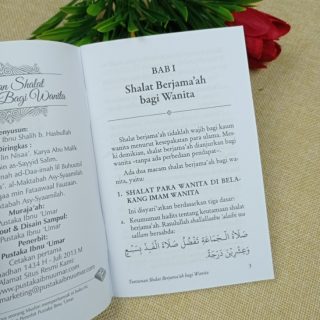 an Shalat
Bagi Wanita
enyusun:
Ibnu Shalih b. Hasbullah
Diringkas :
in Nisaa'. Karya Abu Malik
in as-Sayyid Salim.
ad-Daa-il al-Buhuutsi
al-Maktabah Asy-Syaamilah.
min Fataawaal Fautaan.
Asy-Syaamilah.
Muraja'ah:
Pustaka Ibnu 'Umar
out & Disain Sampul:
Pustaka Ibnu 'Umar
Penerbit:
Pustaka Ibnu 'Umar
Cetakan pertama
adhan 1434 H - Juli 2013 M
Alamat Situs Resmi Kami:
www.pustakaibnuumar.com
marketing@pustakaibnuumar.com
Penerbit Pustaka Ibnu 'Umar
BAB I
Shalat Berjama'ah
bagi Wanita
Shalat berjama'ah tidaklah wajib bagi kaum
wanita menurut kesepakatan para ulama. Mes-
ki demikian, shalat berjama'ah dianjurkan bagi
wanita -tanpa ada perbedaan pendapat-.
Ada dua macam shalat berjama'ah bagi wa-
nita, yaitu:
1. SHALAT PARA WANITA DI BELA-
KANG IMAM WANITA
Ini disyari'atkan berdasarkan dalil:
a. Keumuman hadits tentang keutamaan shalat
berjama'ah. Rasulullah shallallaahu 'alaihi wa
sallam bersabda:
صَلَاةُ الْجَمَاعَةِ تَفْضُلُ صَلَاةَ الْفَذِّ بِسَبْعٍ
وَعِشْرِينَ دَرَجَةً.
Tuntunan Shalat Berjama'ah bagi Wanita